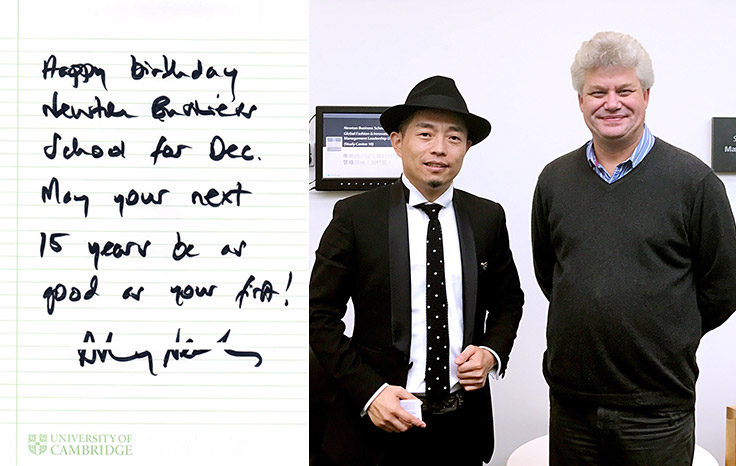 Happy birthday
Newton Business
School for Dec.
May your next
15 years be as
good as your first!
UNIVERSITY OF
CAMBRIDGE
Newton Business Sch
Global Fashion & Innovati
Management Leadership
(Study Center 10)